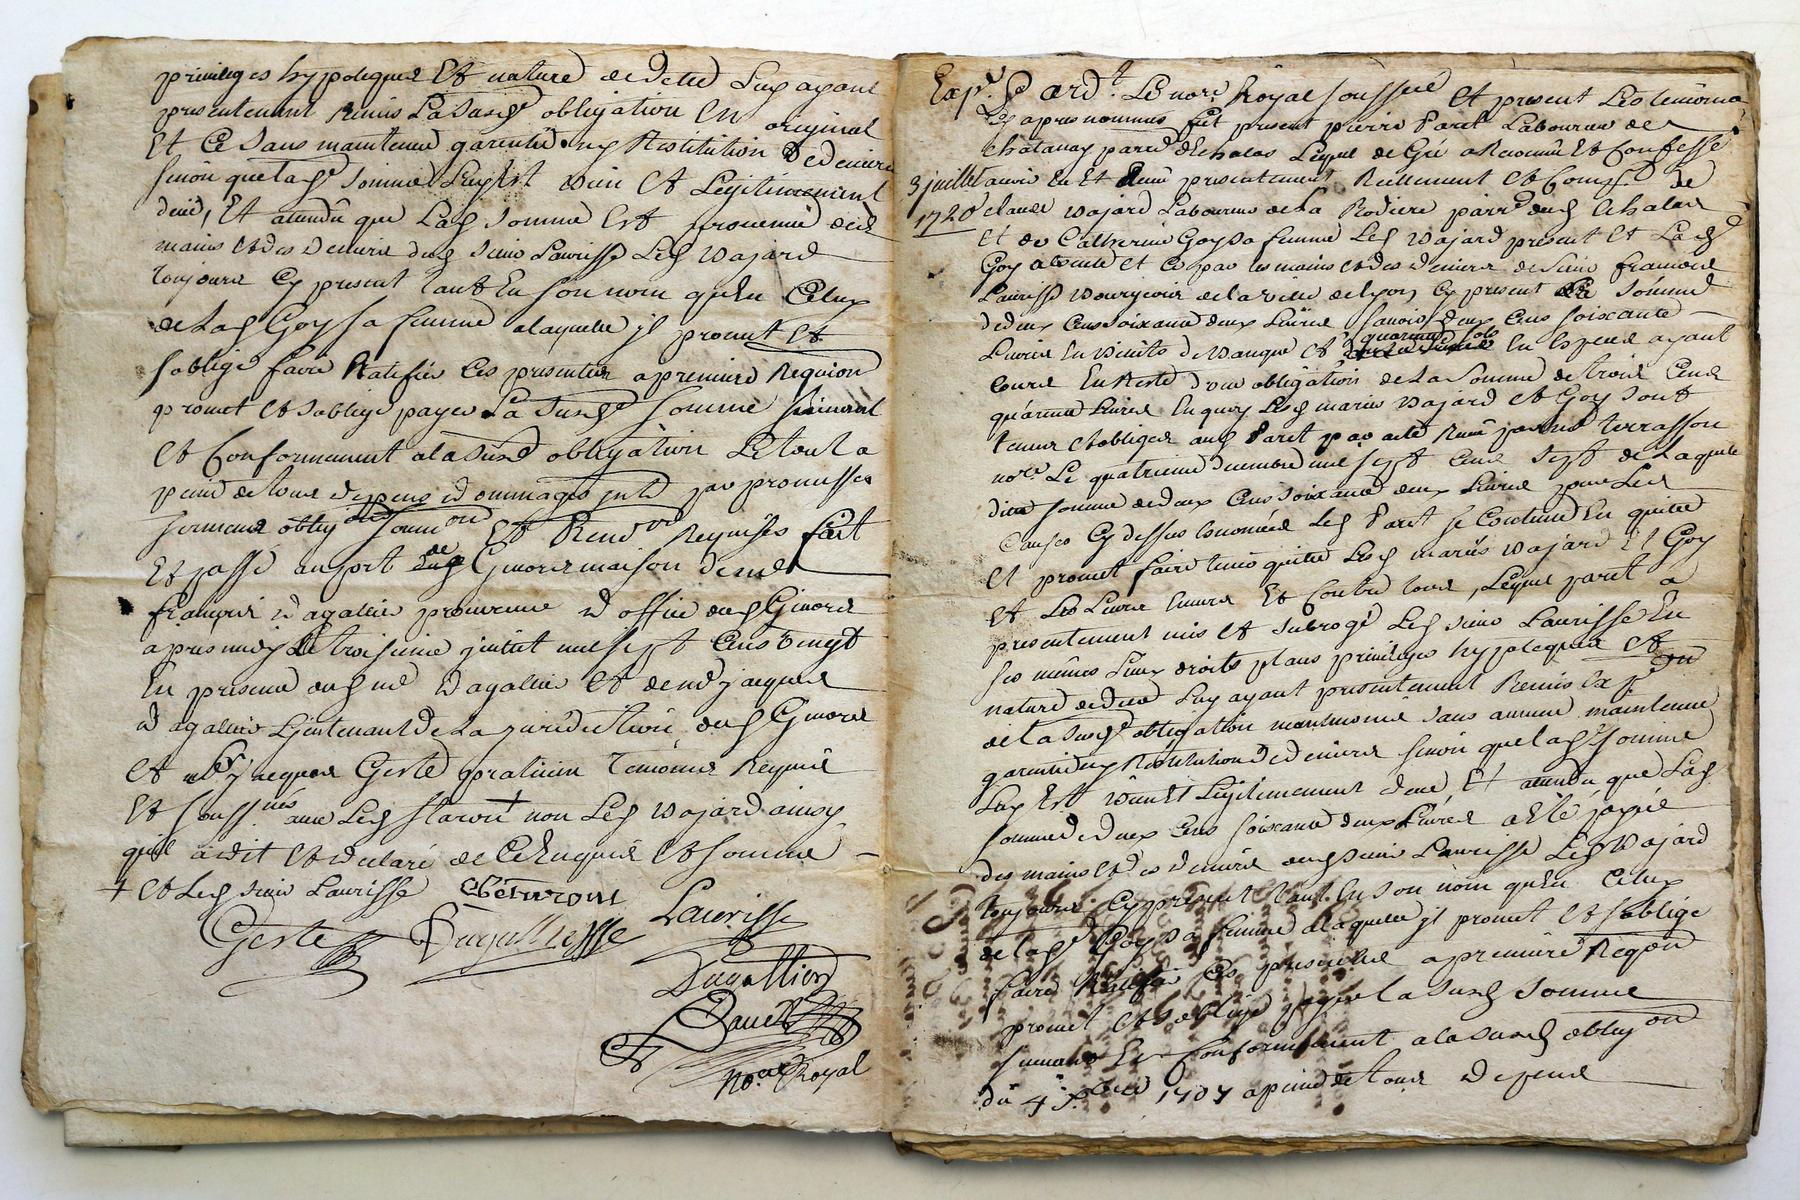 privileges hypoteques Et nature de dette Luy ayant
presentement remis La susd obligation En original
Et Ce sans maintenue garentie ny Restitution de deniers
sinon que lad somme Luy Est duue et Legitimement
deue, Et attendu que Lad somme Est provenue des
mains et des deniers dud sieur Laurisse Led Dajard
toujours Cy present tant En son nom qu'En Celuy
de Lad Goy sa femme a laquelle jl promet et
soblige faire Ratifier Ces presentes a premiere Requion
promet et soblige payer La susde somme suivant
et Conformement a la susd obligation Le tout a
peine de tous depens dommages jnts par promesses
serment oblig on soumon Et Renon Requises fait
Et passé au port de Givors maison de me
françois dagallier procureur d office dud Givors
apres midy Le troisieme juillet mil sept Cens vingt
En presence dud me dagallier et de me jacques
dagallier Lieutenant de La jurisdiction dud Givors
et jacques Geste praticien temoins Requis
Et soussnés avec Led + non Led Dajard ainsy
quil a dit et declaré de Ce Enquis et sommé
+ et Led sieur Laurisse
Geste Laurisse
Dagallier
no.re Royal
Exp. Pard.t Le nore Royal soussigné Et present Les temoins
Les apres nommes fut present pierre Paret Laboureur de
Chatanay parr d'Echalas Lequel de Gré a Reconnu Et Confessé
3 juillet 1720
avoir Eu Et Receu presentement Reellement et Comp de
claude Dajard Laboureur de La Rodiere parr dud Echalas
et de Catherine Goy sa femme Led Dajard present et Lad
Goy absente et ce par les mains et des deniers de sieur francois
Laurisse Bourgeois de la ville de lyon, Cy present La somme
de deux Cens soixante deux Livres savoir deux Cens soixante
Livres En billets de banque et quarante sols En Especes ayant
cours En Reste d'une obligation de La somme de trois Cens
quarante Livres En quoy Lesd mariés Dajard et Goy sont
tenus et obliges aud Paret par acte Receu par me terrasson
nore Le quatrieme decembre mil sept Cens sept de Laquelle
ditte somme de deux Cens soixante deux Livres pour Les
Causes Cy dessus Enoncées Led Paret se Contente En quitte
et promet faire tenir quitte Lesd mariés Dajard Et Goy
et Les Livres Envers Et Contre tous, Lequel paret a
presentement mis et subrogé Led sieur Laurisse En
ses memes Lieux droits places privileges hypoteques et
nature de dette Luy ayant presentement Remis
de La susd obligation sans aucune maintenue
garentie ny Restitution de deniers sinon que lad somme
Luy Est duue Et Legitimement deue Et attendu que Lad
somme de deux Cens soixante deux Livres a Eté payée
des mains et des deniers dud sieur Laurisse Led Dajard
toujours Cy present tant En son nom qu'En Celuy
de lad Goy sa femme a laquelle jl promet et soblige
faire Ratifier Ces presentes a premiere Reqon
promet et soblige payer La susd somme
suivant Et Conformement a la susd obligon
du 4 1707 a peine de tous depens